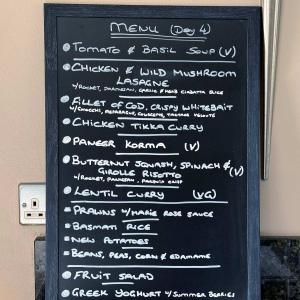 MENU (Day 4)
TOMATO & BASIL SOUP (V)
CHICKEN & WILD MUSHROOM
LASAGNE
W/ROCKET, PARMESAN, GARLIC & HERB CIABATTA RICE
FILLET OF COD, CRISPY WHITEBAIT
W/GNOCCHI, ASPARAGUS, COURGETTE, TARTARE VELOUTÉ
CHICKEN TIKKA CURRY
PANEER KORMA (V)
BUTTERNUT SQUASH, SPINACH &
GIROLLE RISOTTO (V)
W/ROCKET, PARMESAN, CRISP
LENTIL CURRY (VG)
PRAWNS W/MARIE ROSE SAUCE
BASMATI RICE
NEW POTATOES
BEANS, PEAS, CORN & EDAMAME
FRUIT SALAD
GREEK YOGHURT W/SUMMER BERRIES